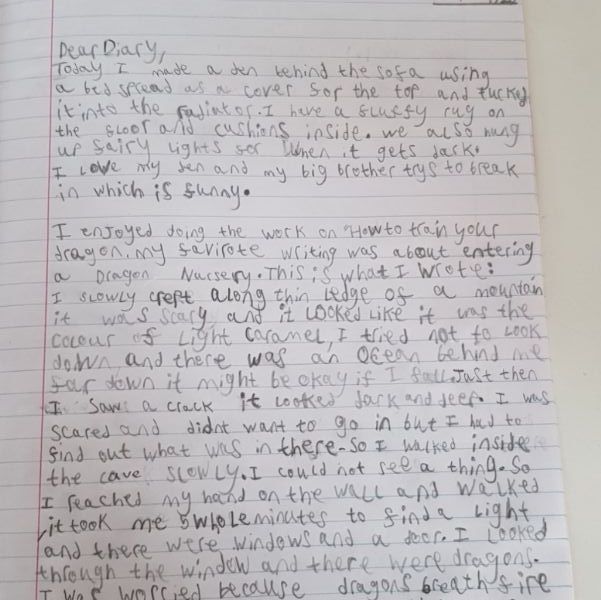 Dear Diary,
Today I made a den behind the sofa using
a bed spread as a cover for the top and tucked
it into the radiator. I have a fluffy rug on
the floor and cushions inside. we also hung
up fairy lights for when it gets dark.
I Love my den and my big brother trys to break
in which is funny.
I enjoyed doing the work on "How to train your
dragon. my favirote writing was about entering
a Dragon Nursery. This is what I wrote:
I slowly crept along thin ledge of a mountain
it was scary and it looked like it was the
colour of Light caramel, I tried not to Look
down and there was an Ocean behind me
far down it might be okay if I fall. Just then
I saw a crack it looked dark and deep. I was
scared and didnt want to go in but I had to
find out what was in there. So I walked inside
the cave slowly. I could not see a thing. So
I reached my hand on the wall and walked
it took me 5 whole minutes to find a light
and there were windows and a door. I Looked
through the window and there were dragons.
I was worried because dragons breath fire